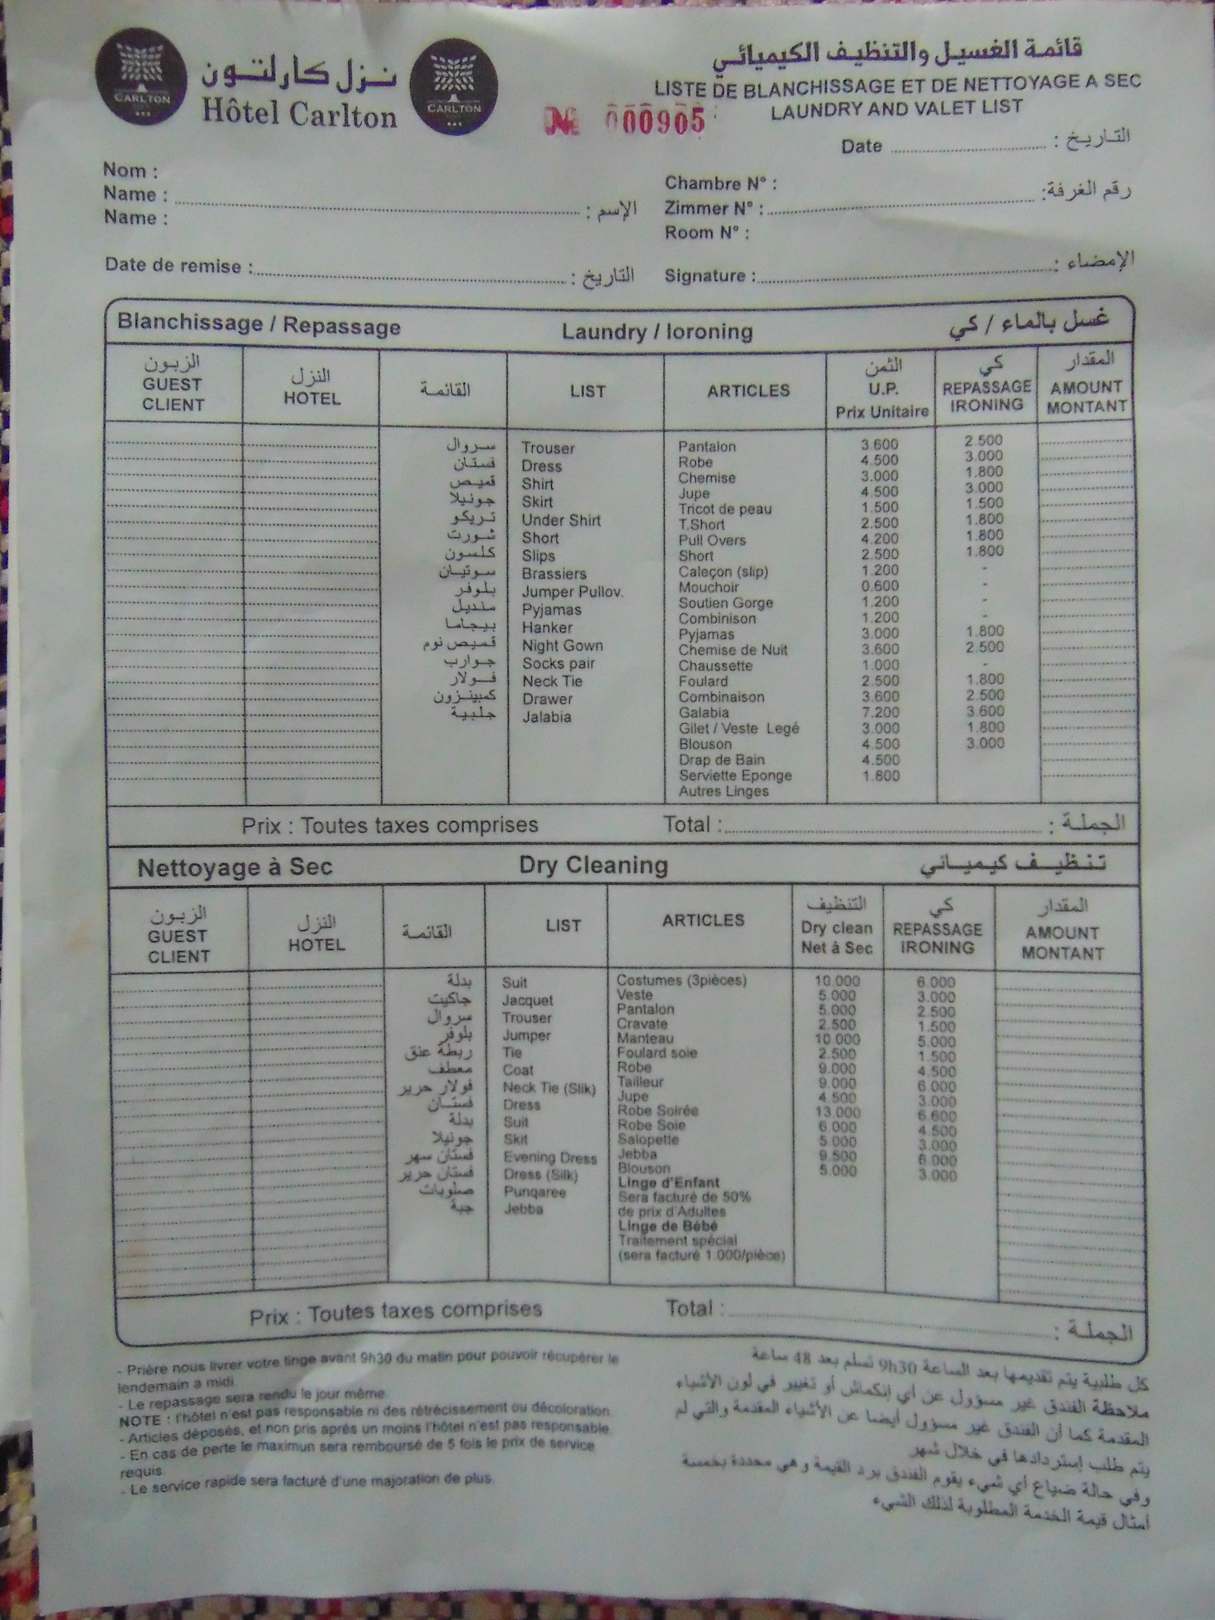 CARLTON
نزل كارلتون
Hôtel Carlton
CARLTON
قائمة الغسيل والتنظيف الكيميائي
LISTE DE BLANCHISSAGE ET DE NETTOYAGE A SEC
LAUNDRY AND VALET LIST
№ 000905
Date التاريخ :
Nom :
Name : الإسم :
Name :
Chambre N° :
Zimmer N° : رقم الغرفة:
Room N° :
Date de remise : التاريخ :
Signature : الإمضاء :
Blanchissage / Repassage Laundry / Ioroning غسل بالماء / كي
الزبون النزل القائمة LIST ARTICLES الثمن كي المقدار
GUEST HOTEL U.P. REPASSAGE AMOUNT
CLIENT Prix Unitaire IRONING MONTANT
سروال
فستان
قميص
جونيلا
تريكو
شورت
كلسون
سوتيان
بلوفر
منديل
بيجاما
قميص نوم
جوارب
فولار
كمبينزون
جلبية
Trouser
Dress
Shirt
Skirt
Under Shirt
Short
Slips
Brassiers
Jumper Pullov.
Pyjamas
Hanker
Night Gown
Socks pair
Neck Tie
Drawer
Jalabia
Pantalon 3.600 2.500
Robe 4.500 3.000
Chemise 3.000 1.800
Jupe 4.500 3.000
Tricot de peau 1.500 1.500
T.Short 2.500 1.800
Pull Overs 4.200 1.800
Short 2.500 1.800
Caleçon (slip) 1.200 -
Mouchoir 0.600 -
Soutien Gorge 1.200 -
Combinison 1.200 -
Pyjamas 3.000 1.800
Chemise de Nuit 3.600 2.500
Chaussette 1.000 -
Foulard 2.500 1.800
Combinaison 3.600 2.500
Galabia 7.200 3.600
Gilet / Veste Legé 3.000 1.800
Blouson 4.500 3.000
Drap de Bain 4.500
Serviette Eponge 1.800
Autres Linges
Prix : Toutes taxes comprises Total : الجملة :
Nettoyage à Sec Dry Cleaning تنظيف كيميائي
الزبون النزل القائمة LIST ARTICLES التنظيف كي المقدار
GUEST HOTEL Dry clean REPASSAGE AMOUNT
CLIENT Net à Sec IRONING MONTANT
بدلة
جاكيت
سروال
بلوفر
ربطة عنق
معطف
فولار حرير
فستان
بدلة
جونيلا
فستان سهر
فستان حرير
صلوبات
جبة
Suit
Jacquet
Trouser
Jumper
Tie
Coat
Neck Tie (Slik)
Dress
Suit
Skit
Evening Dress
Dress (Silk)
Punqaree
Jebba
Costumes (3pièces) 10.000 6.000
Veste 5.000 3.000
Pantalon 5.000 2.500
Cravate 2.500 1.500
Manteau 10.000 5.000
Foulard soie 2.500 1.500
Robe 9.000 4.500
Tailleur 9.000 6.000
Jupe 4.500 3.000
Robe Soirée 13.000 6.600
Robe Soie 6.000 4.500
Salopette 5.000 3.000
Jebba 9.500 6.000
Blouson 5.000 3.000
Linge d'Enfant
Sera facturé de 50%
de prix d'Adultes
Linge de Bébé
Traitement spécial
(sera facturé 1.000/pièce)
Prix : Toutes taxes comprises Total : الجملة :
- Prière nous livrer votre linge avant 9h30 du matin pour pouvoir récupérer le
lendemain a midi.
- Le repassage sera rendu le jour même.
NOTE : l'hôtel n'est pas responsable ni des rétrécissement ou décoloration.
- Articles déposés, et non pris après un moins l'hôtel n'est pas responsable.
- En cas de perte le maximun sera remboursé de 5 fois le prix de service
requis.
- Le service rapide sera facturé d'une majoration de plus.
كل طلبية يتم تقديمها بعد الساعة 9h30 تسلم بعد 48 ساعة
ملاحظة الفندق غير مسؤول عن أي إنكماش أو تغيير في لون الأشياء
المقدمة كما أن الفندق غير مسؤول أيضا عن الأشياء المقدمة والتي لم
يتم طلب إستردادها في خلال شهر
وفي حالة ضياع أي شيء يقوم الفندق برد القيمة وهي محددة بخمسة
أمثال قيمة الخدمة المطلوبة لذلك الشيء